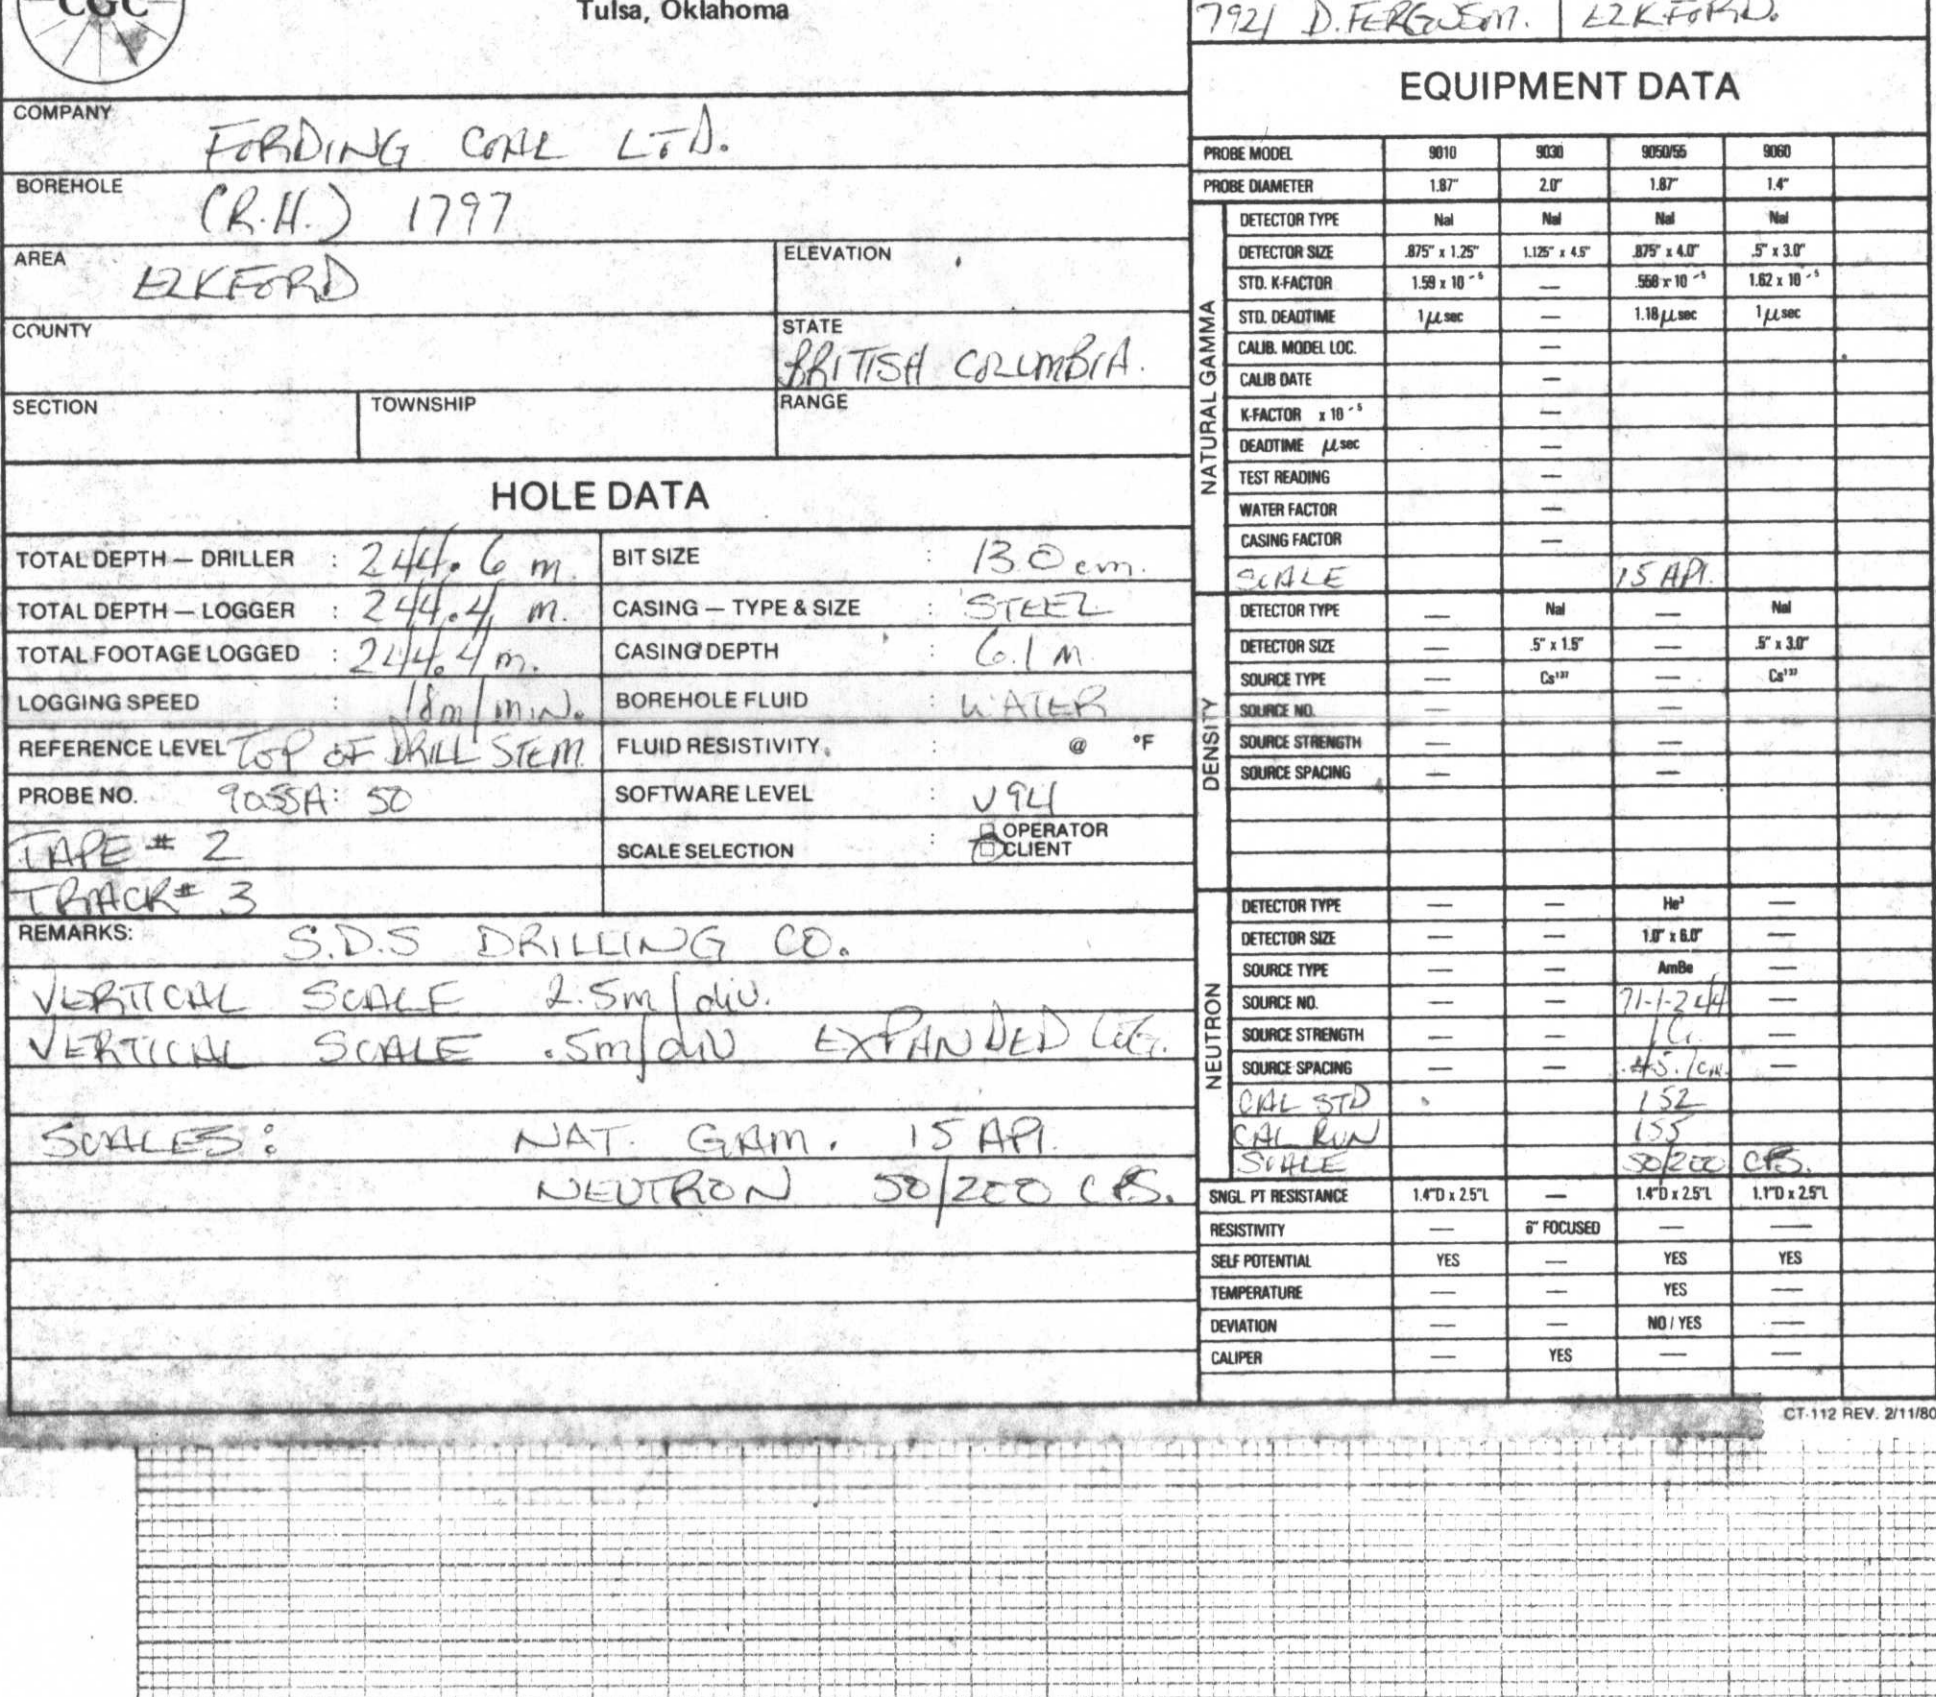 CGC
Tulsa, Oklahoma
7921 D. FERGUSON. ELKFORD.
COMPANY
FORDING COAL LTD.
BOREHOLE
(R.H.) 1797
AREA
ELKFORD
ELEVATION
COUNTY
STATE
BRITISH COLUMBIA.
SECTION TOWNSHIP RANGE
HOLE DATA
TOTAL DEPTH — DRILLER : 244.6 m. BIT SIZE : 13.0 cm.
TOTAL DEPTH — LOGGER : 244.4 m. CASING — TYPE & SIZE : STEEL
TOTAL FOOTAGE LOGGED : 244.4 m. CASING DEPTH : 6.1 m
LOGGING SPEED : 18m/min. BOREHOLE FLUID : WATER
REFERENCE LEVEL TOP OF DRILL STEM FLUID RESISTIVITY : @ °F
PROBE NO. 9055A: 50 SOFTWARE LEVEL : V94
TAPE # 2 SCALE SELECTION : OPERATOR
CLIENT
TRACK # 3
REMARKS: S.D.S DRILLING CO.
VERTICAL SCALE 2.5m/div.
VERTICAL SCALE .5m/div EXPANDED LOG.
SCALES: NAT. GAM. 15 API.
NEUTRON 50/200 CPS.
EQUIPMENT DATA
PROBE MODEL 9010 9030 9050/55 9060
PROBE DIAMETER 1.87" 2.0" 1.87" 1.4"
NATURAL GAMMA
DETECTOR TYPE NaI NaI NaI NaI
DETECTOR SIZE .875" x 1.25" 1.125" x 4.5" .875" x 4.0" .5" x 3.0"
STD. K-FACTOR 1.59 x 10⁻⁵ — 10⁻⁵ 1.62 x 10⁻⁵
STD. DEADTIME 1 μsec — 1.18 μsec 1 μsec
CALIB. MODEL LOC. —
CALIB DATE —
K-FACTOR x 10⁻⁵ —
DEADTIME μsec —
TEST READING —
WATER FACTOR —
CASING FACTOR —
SCALE 15 API.
DENSITY
DETECTOR TYPE — NaI — NaI
DETECTOR SIZE — .5" x 1.5" — .5" x 3.0"
SOURCE TYPE — Cs¹³⁷ — Cs¹³⁷
SOURCE NO. — —
SOURCE STRENGTH — —
SOURCE SPACING — —
NEUTRON
DETECTOR TYPE — — He³ —
DETECTOR SIZE — — 1.0" x 6.0" —
SOURCE TYPE — — AmBe —
SOURCE NO. — — 71-1-244 —
SOURCE STRENGTH — — 1 Ci. —
SOURCE SPACING — — —
CAL STD 152
CAL RUN 155
SCALE 50/200 CPS.
SNGL. PT RESISTANCE 1.4"D x 2.5"L — 1.4"D x 2.5"L 1.1"D x 2.5"L
RESISTIVITY — 6" FOCUSED — —
SELF POTENTIAL YES — YES YES
TEMPERATURE — — YES —
DEVIATION — — NO / YES —
CALIPER — YES — —
CT-112 REV. 2/11/80